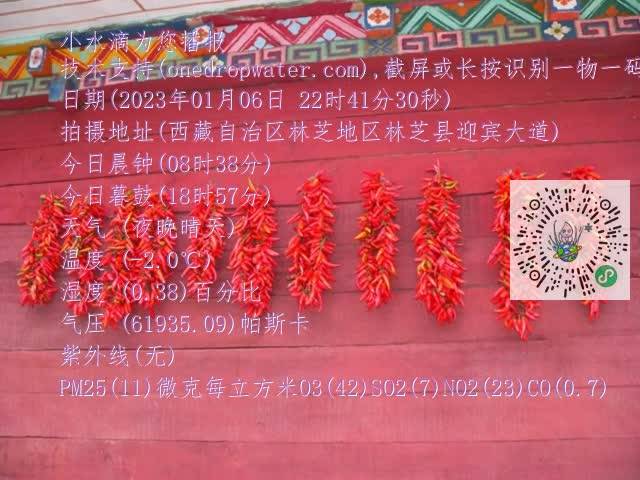 小水滴为您播报
技术支持(onedropwater.com),截屏或长按识别一物一码
日期(2023年01月06日 22时41分30秒)
拍摄地址(西藏自治区林芝地区林芝县迎宾大道)
今日晨钟(08时38分)
今日暮鼓(18时57分)
天气 (夜晚晴天)
温度 (-2.0℃)
湿度 (0.38)百分比
气压 (61935.09)帕斯卡
紫外线(无)
PM25(11)微克每立方米O3(42)SO2(7)NO2(23)CO(0.7)